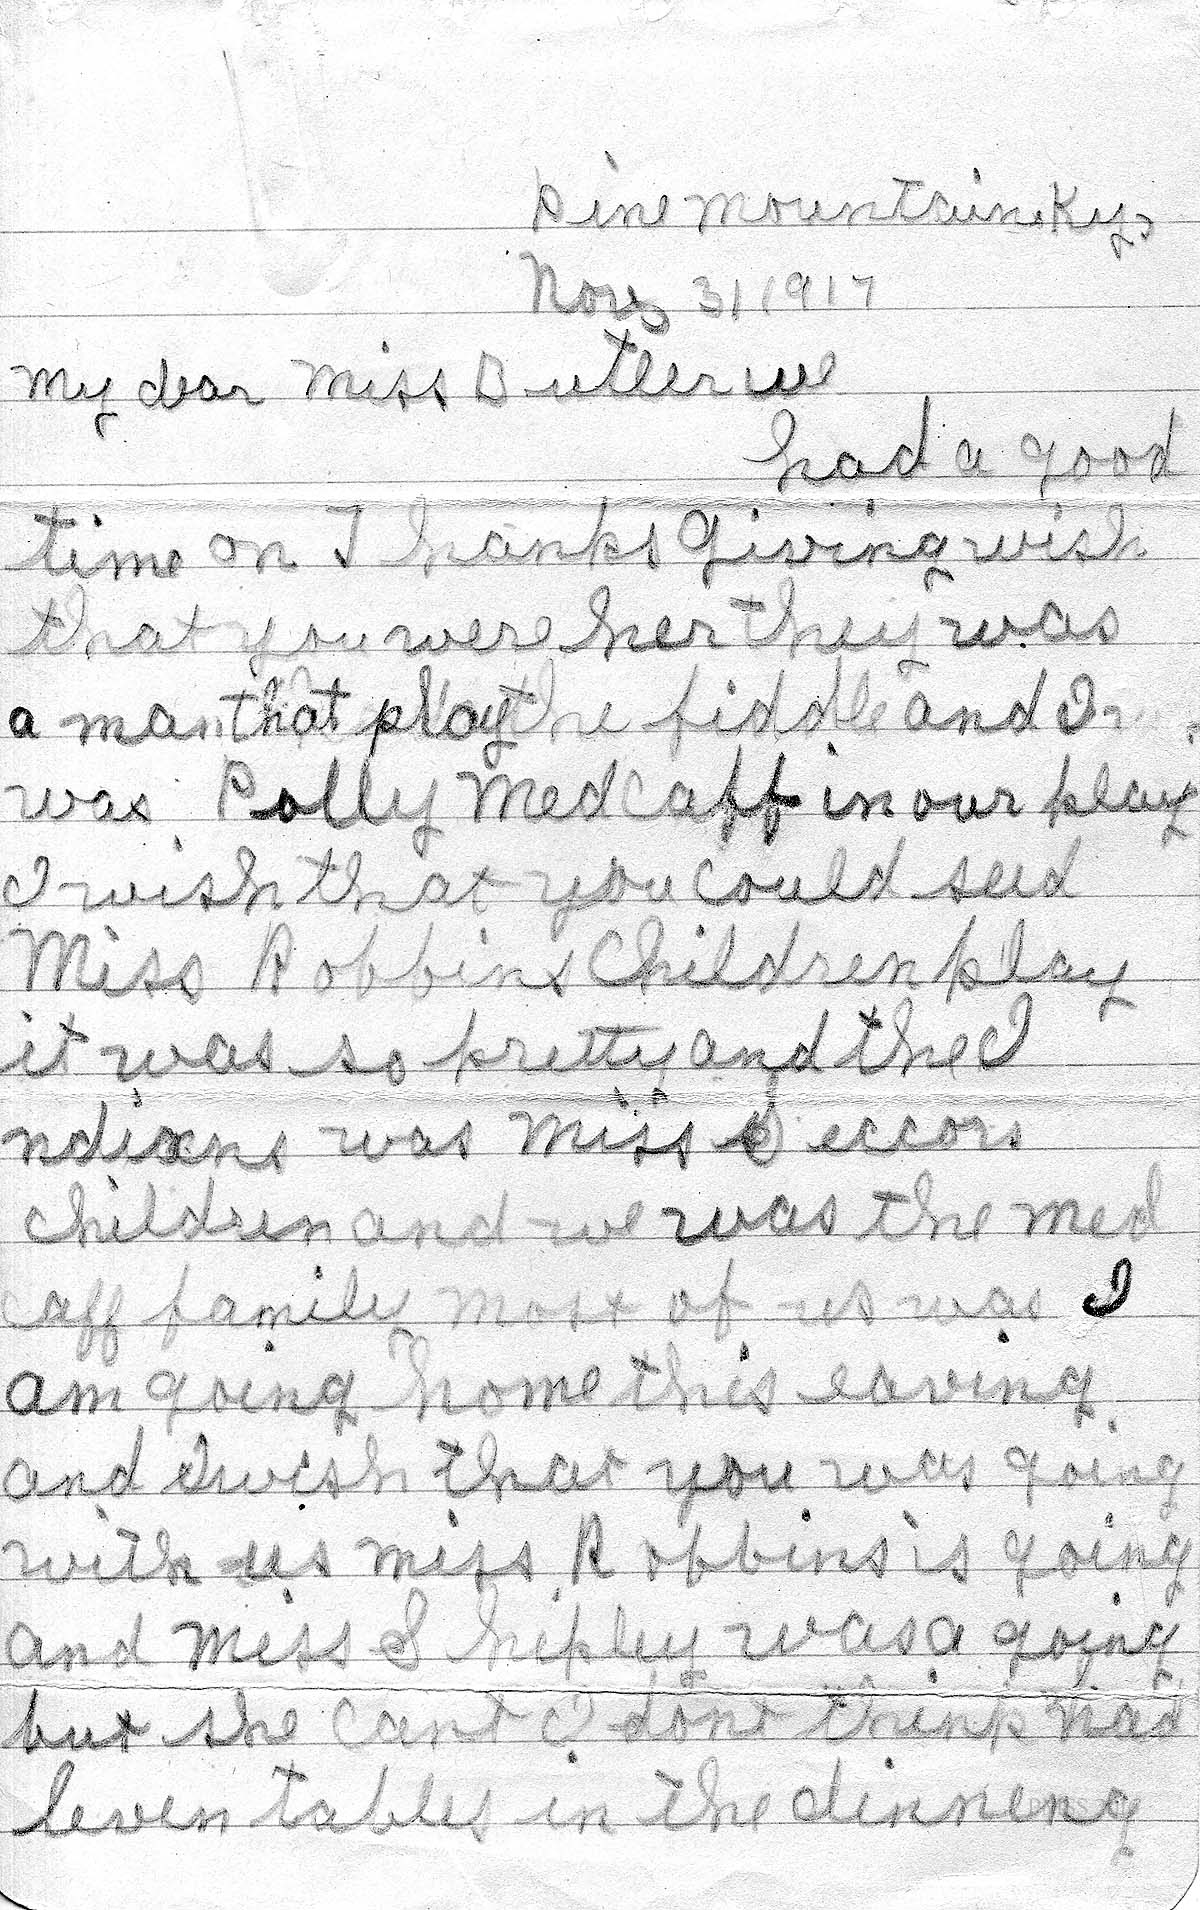 Pine mountain. Ky,
Nov, 31 1917
My dear Miss Butler we
had a good
time on Thanks Giving wish
that you were her they was
a man that play the fiddle and I
was Polly Medcaff in our play
I wish that you could seed
Miss Robbins Children play
it was so pretty and the I
ndians was Miss
children and we was the med
caff family most of us was I
am going home this eaving
and I wish that you was going
with us miss Robbins is going
and Miss Shipley was a going
but she cant I dont think had
leven tables in the dinneng